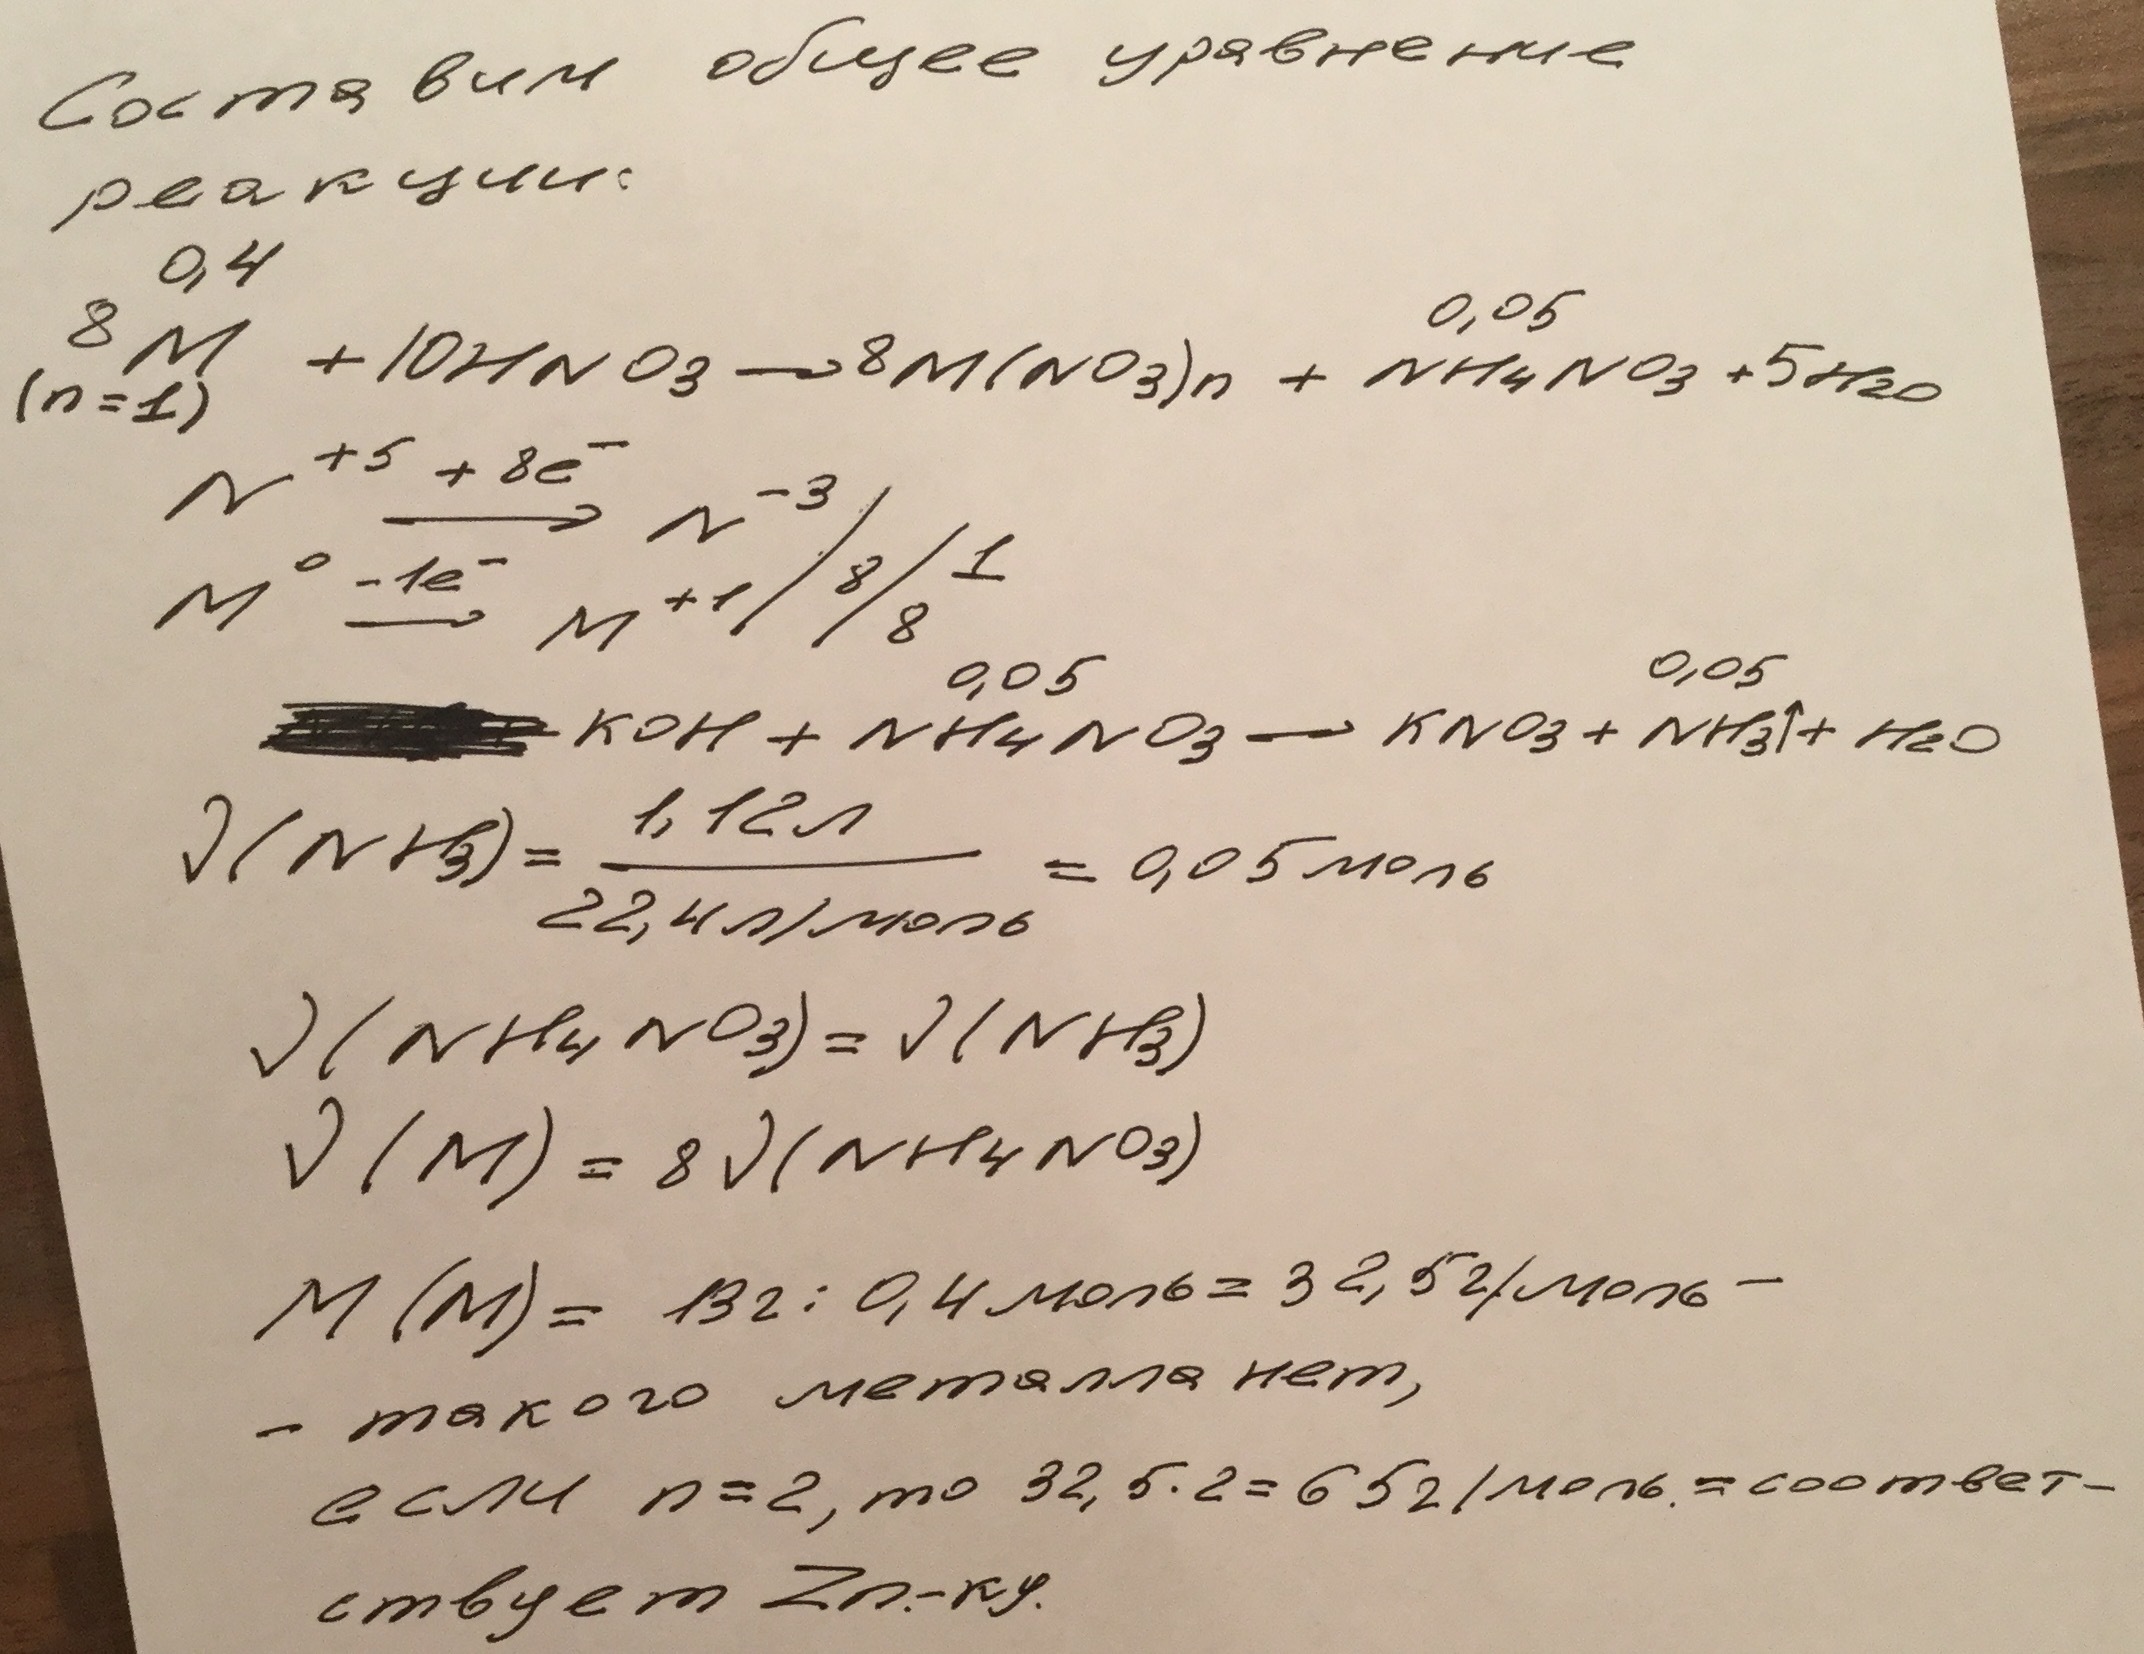 Составим общее уравнение
реакции:
0,4
0,05
8M + 10HNO3 → 8M(NO3)n + NH4NO3 + 5H2O
(n=1)
N+5 +8e- → N-3 / 8 / 1
M0 -1e- → M+1 / 8
0,05 0,05
KOH + NH4NO3 → KNO3 + NH3↑ + H2O
ν(NH3) = 1,12л / 22,4л/моль = 0,05 моль
ν(NH4NO3) = ν(NH3)
ν(M) = 8ν(NH4NO3)
M(M) = 13г : 0,4 моль = 32,5г/моль –
– такого металла нет,
если n=2, то 32,5·2=65г/моль. = соответ-
ствует Zn.-ку.